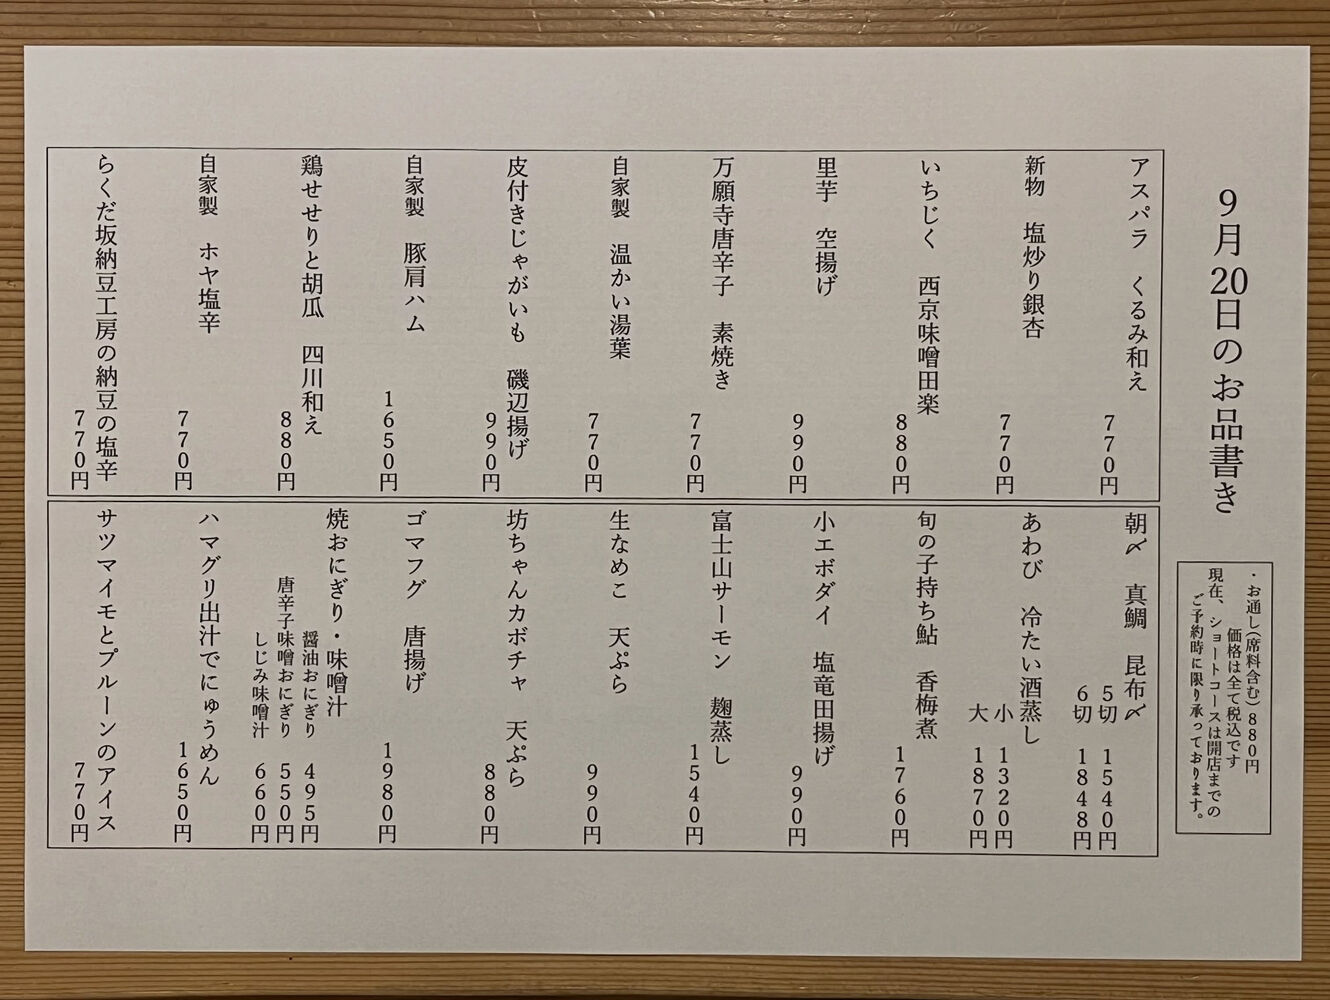 9月20日のお品書き
・お通し(席料含む)880円
価格は全て税込です
現在、ショートコースは開店までの
ご予約時に限り承っております。
アスパラ くるみ和え
770円
新物 塩炒り銀杏
770円
いちじく 西京味噌田楽
880円
里芋 空揚げ
990円
万願寺唐辛子 素焼き
770円
自家製 温かい湯葉
770円
皮付きじゃがいも 磯辺揚げ
990円
自家製 豚肩ハム
1650円
鶏せせりと胡瓜 四川和え
880円
自家製 ホヤ塩辛
770円
らくだ坂納豆工房の納豆の塩辛
770円
朝〆 真鯛 昆布〆
5切 1540円
6切 1848円
あわび 冷たい酒蒸し
小 1320円
大 1870円
旬の子持ち鮎 香梅煮
1760円
小エボダイ 塩竜田揚げ
990円
富士山サーモン 麹蒸し
1540円
生なめこ 天ぷら
990円
坊ちゃんカボチャ 天ぷら
880円
ゴマフグ 唐揚げ
1980円
焼おにぎり・味噌汁
醤油おにぎり 495円
唐辛子味噌おにぎり 550円
しじみ味噌汁 660円
ハマグリ出汁でにゅうめん
1650円
サツマイモとプルーンのアイス
770円